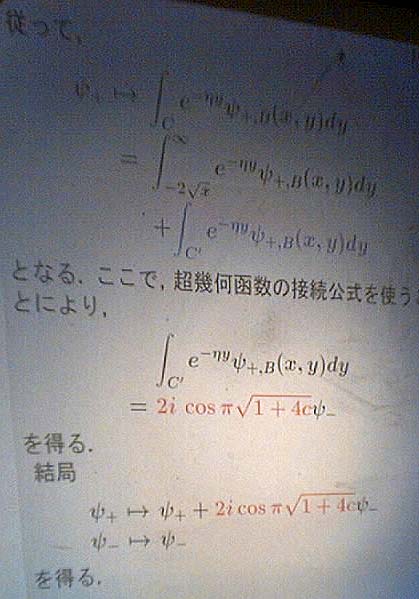 従って,
ψ₊ ↦ ∫_C e^{-ηy}ψ_{+,B}(x, y)dy
= ∫_{-2√x}^{∞} e^{-ηy}ψ_{+,B}(x, y)dy
+ ∫_{C'} e^{-ηy}ψ_{+,B}(x, y)dy
となる. ここで, 超幾何函数の接続公式を使う
とにより,
∫_{C'} e^{-ηy}ψ_{+,B}(x, y)dy
= 2i cos π√(1+4c)ψ₋
を得る.
結局
ψ₊ ↦ ψ₊ + 2i cos π√(1+4c)ψ₋
ψ₋ ↦ ψ₋
を得る.